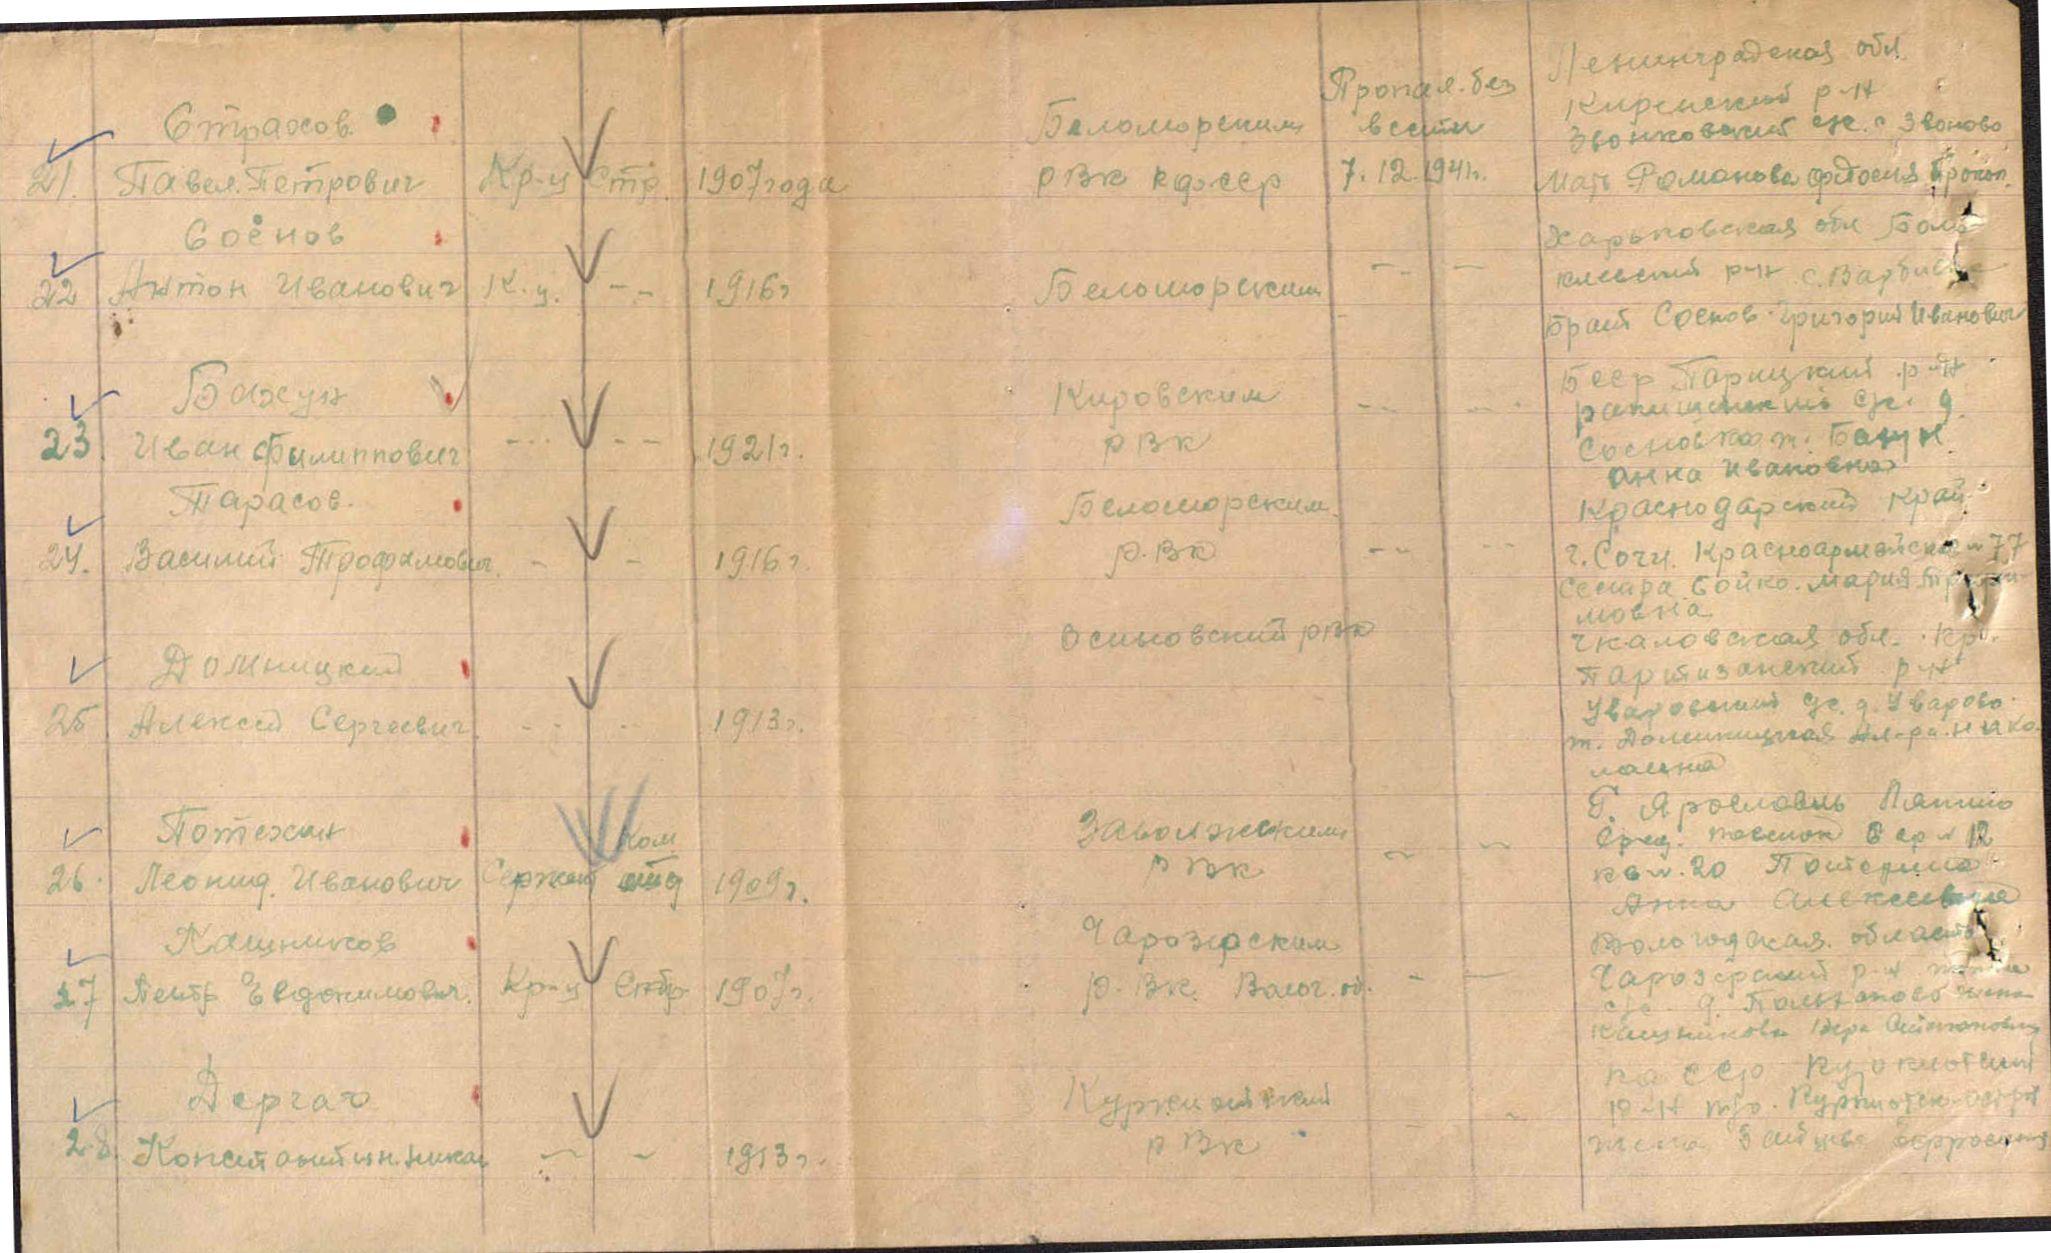 Страхов
21. Павел Петрович Кр-ц Стр. 1907 года Беломорским РВК КФССР Пропал без вести 7.12.1941г.
Ленинградская обл.
р-н
Звонковский с/с. Звоново
Мать Романова Федосия Прокоп.
Соснов
22 Антон Иванович К-ц. -- 1916г Беломорским -- --
Харьковская обл
р-н с.
Брат Соснов Григорий Иванович
Бахун
23. Иван Филиппович --- -- 1921г. Кировским РВК -- --
БССР Парицкий р-н
с/с. д.
Сосновка м. Бахун
Анна Ивановна
Тарасов.
24. Василий Трофимович. - - 1916г. Беломорским Р.ВК -- --
Краснодарский край
г. Сочи. Красноармейская 77
Сестра Бойко. Мария Трофи-
мовна
Домницкий
25 Алексей Сергеевич -- - 1913г. Осиновский РВК
Чкаловская обл.
Партизанский р-н
Уваровский с/с. д. Уварово.
м. Домницкая Ал-ра Нико-
лаевна
Потехин
26. Леонид Иванович Сержант ком отд 1909г. Заволжским РВК ~ ~
Г. Ярославль Ляпино
поселок 12
кв. 20 Потехина
Анна Алексеевна
Кашников
27 Петр Евдокимович. Кр-ц Стр 1907г. Чарозерским Р.ВК. Волог. об. - -
Вологодская область
Чарозерский р-н
с/с д. жена
Кашникова Вера
Дергач
28. Константин Никол - - 1913г. РВК
р-н
жена Зайцева